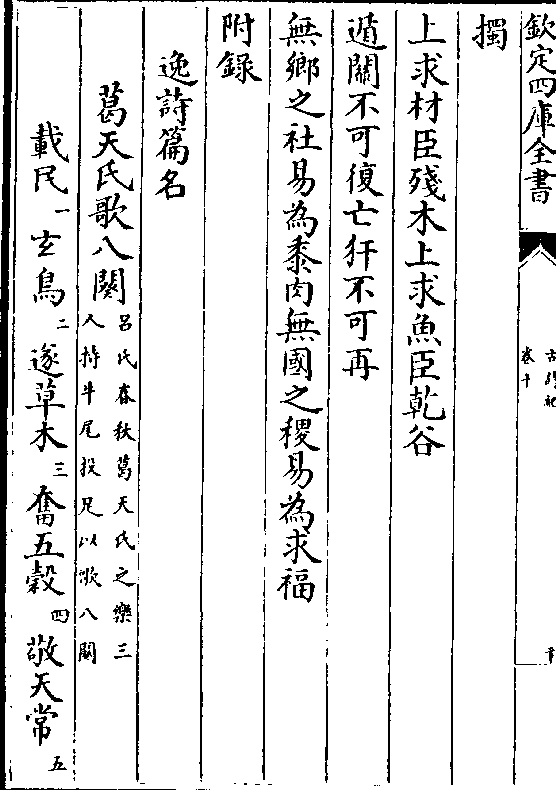 欽定四庫全書
古詩紀
卷十
擉
上求材臣殘木上求魚臣乾谷
遁關不可復亡犴不可再
無鄉之社易為黍肉無國之稷易為求福
附錄
逸詩篇名
葛天氏歌八闋
吕氏春秋葛天氏之樂三
人持牛尾投足以歌八闋
載民一 玄鳥二 遂草木三 奮五穀四 敬天常五